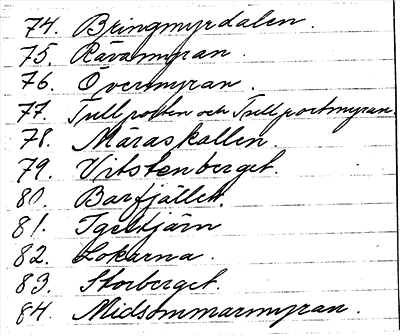 74. Bringmyrdalen.
75. Rävamyran.
76. Övermyran.
77. Tullporten och Tullportmyran.
78. Märaskallen.
79. Vitstenberget.
80. Barfjället.
81. Igeltjärn
82. Lokarna.
83. Storberget.
84. Midsommarmyran.